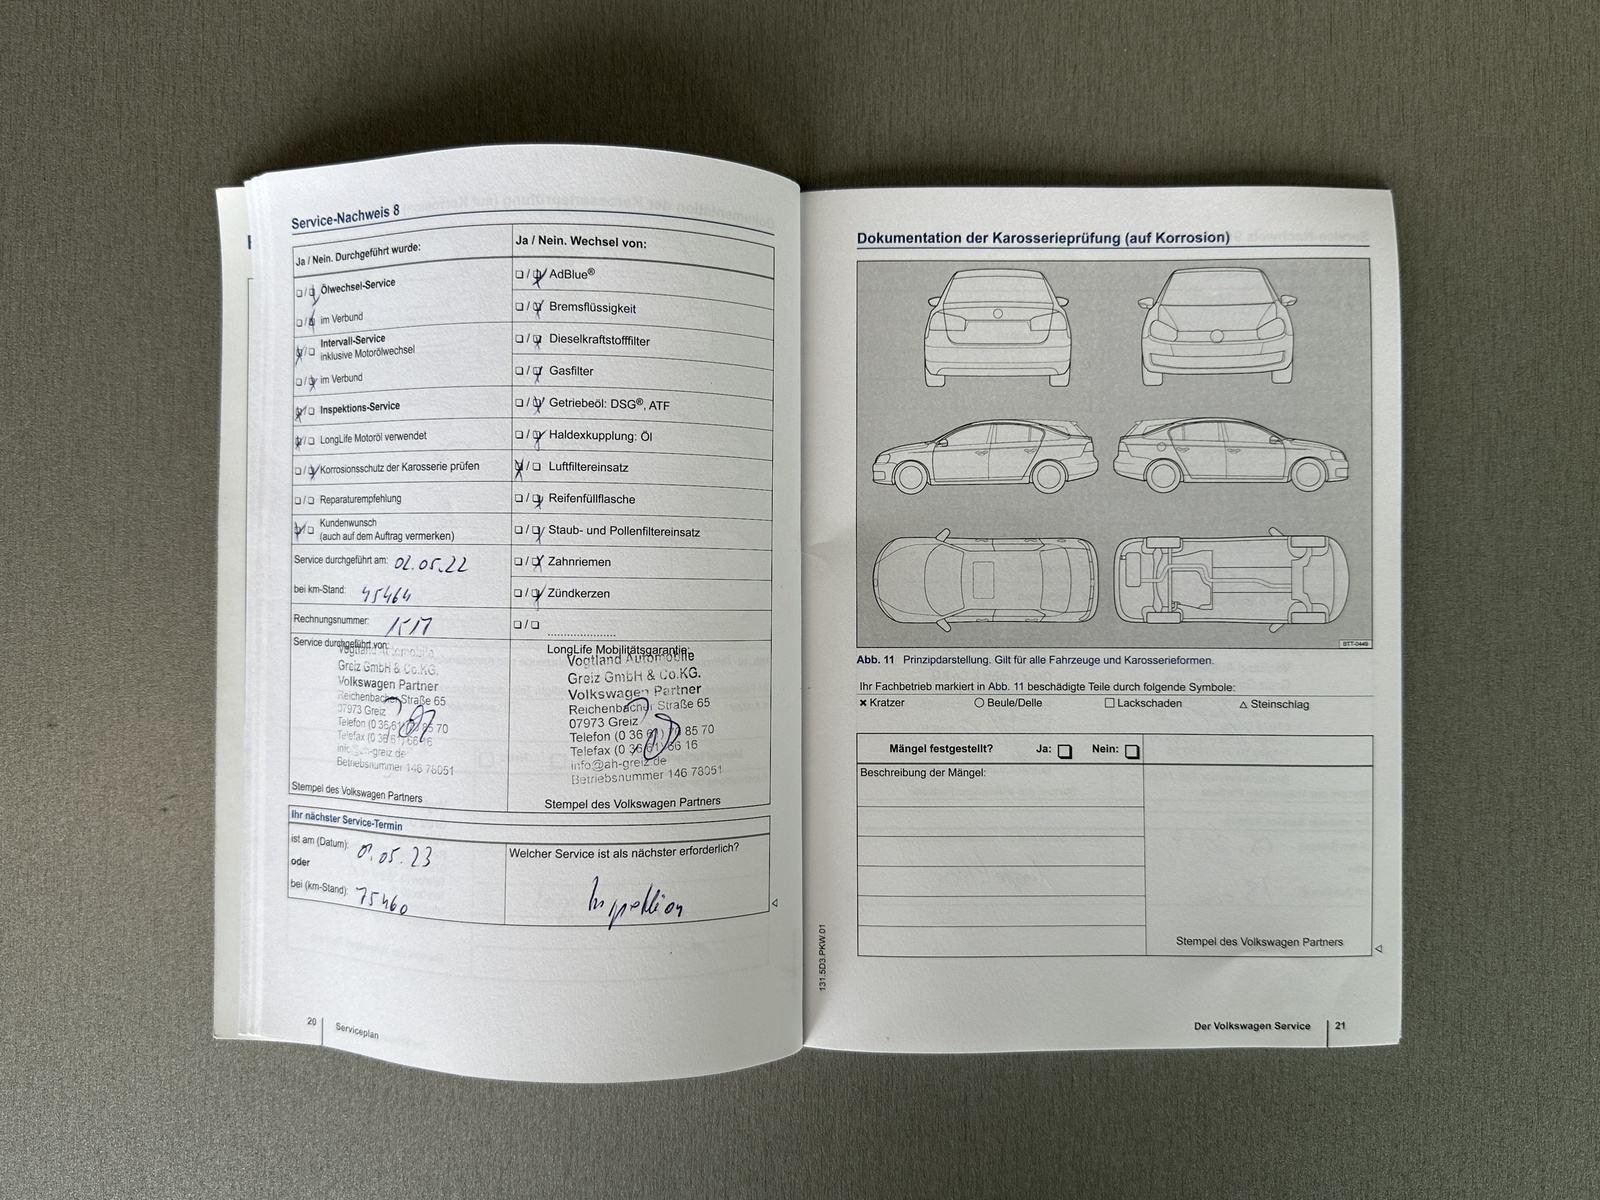 Service-Nachweis 8
Ja / Nein. Durchgeführt wurde:
Ölwechsel-Service
im Verbund
Intervall-Service
inklusive Motorölwechsel
im Verbund
Inspektions-Service
LongLife Motoröl verwendet
Korrosionsschutz der Karosserie prüfen
Reparaturempfehlung
Kundenwunsch
(auch auf dem Auftrag vermerken)
Service durchgeführt am: 02.05.22
bei km-Stand: 45464
Rechnungsnummer:
Service durchgeführt von:
Vogtland Automobile
Greiz GmbH & Co.KG.
Volkswagen Partner
Reichenbacher Straße 65
07973 Greiz
Telefon (0 36 61) 70 85 70
Telefax (0 36 61) 66 16
info@ah-greiz.de
Betriebsnummer 146 78051
Stempel des Volkswagen Partners
Ja / Nein. Wechsel von:
AdBlue®
Bremsflüssigkeit
Dieselkraftstofffilter
Gasfilter
Getriebeöl: DSG®, ATF
Haldexkupplung: Öl
Luftfiltereinsatz
Reifenfüllflasche
Staub- und Pollenfiltereinsatz
Zahnriemen
Zündkerzen
LongLife Mobilitätsgarantie:
Vogtland Automobile
Greiz GmbH & Co.KG.
Volkswagen Partner
Reichenbacher Straße 65
07973 Greiz
Telefon (0 36 61) 70 85 70
Telefax (0 36 61) 66 16
info@ah-greiz.de
Betriebsnummer 146 78051
Stempel des Volkswagen Partners
Ihr nächster Service-Termin
ist am (Datum): 05.23
oder
bei (km-Stand): 75460
Welcher Service ist als nächster erforderlich?
Inspektion
20 Serviceplan
Dokumentation der Karosserieprüfung (auf Korrosion)
BTT-0449
Abb. 11 Prinzipdarstellung. Gilt für alle Fahrzeuge und Karosserieformen.
Ihr Fachbetrieb markiert in Abb. 11 beschädigte Teile durch folgende Symbole:
× Kratzer ○ Beule/Delle □ Lackschaden △ Steinschlag
Mängel festgestellt? Ja: □ Nein: □
Beschreibung der Mängel:
Stempel des Volkswagen Partners
131.5D3.PKW.01
Der Volkswagen Service 21